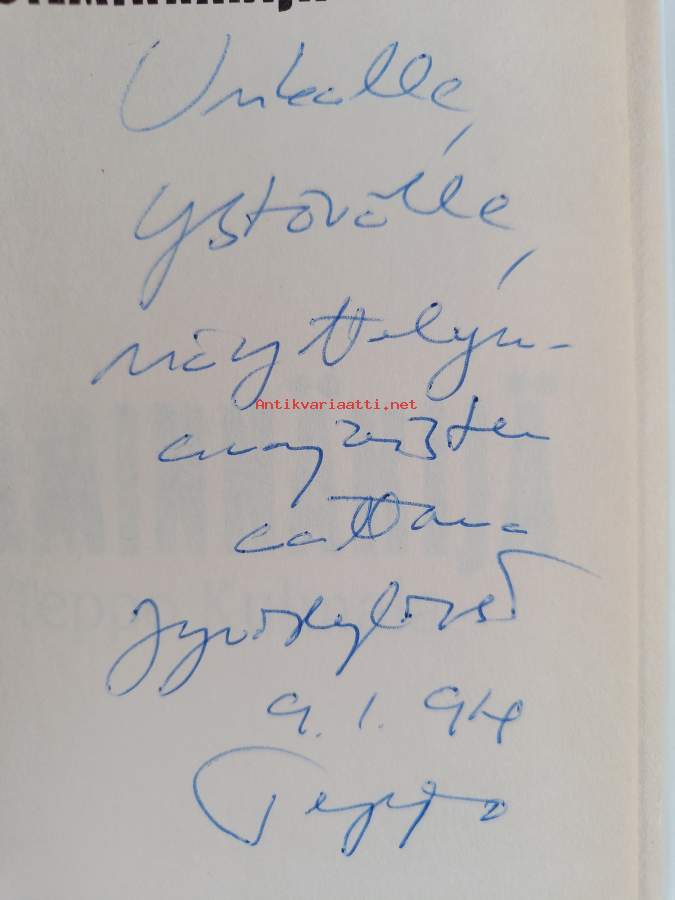 Unkalle,
ystävälle,
näyttelyn-
Antikvariaatti.net
aattona
Jyväskylässä
9.1.94
Teppo